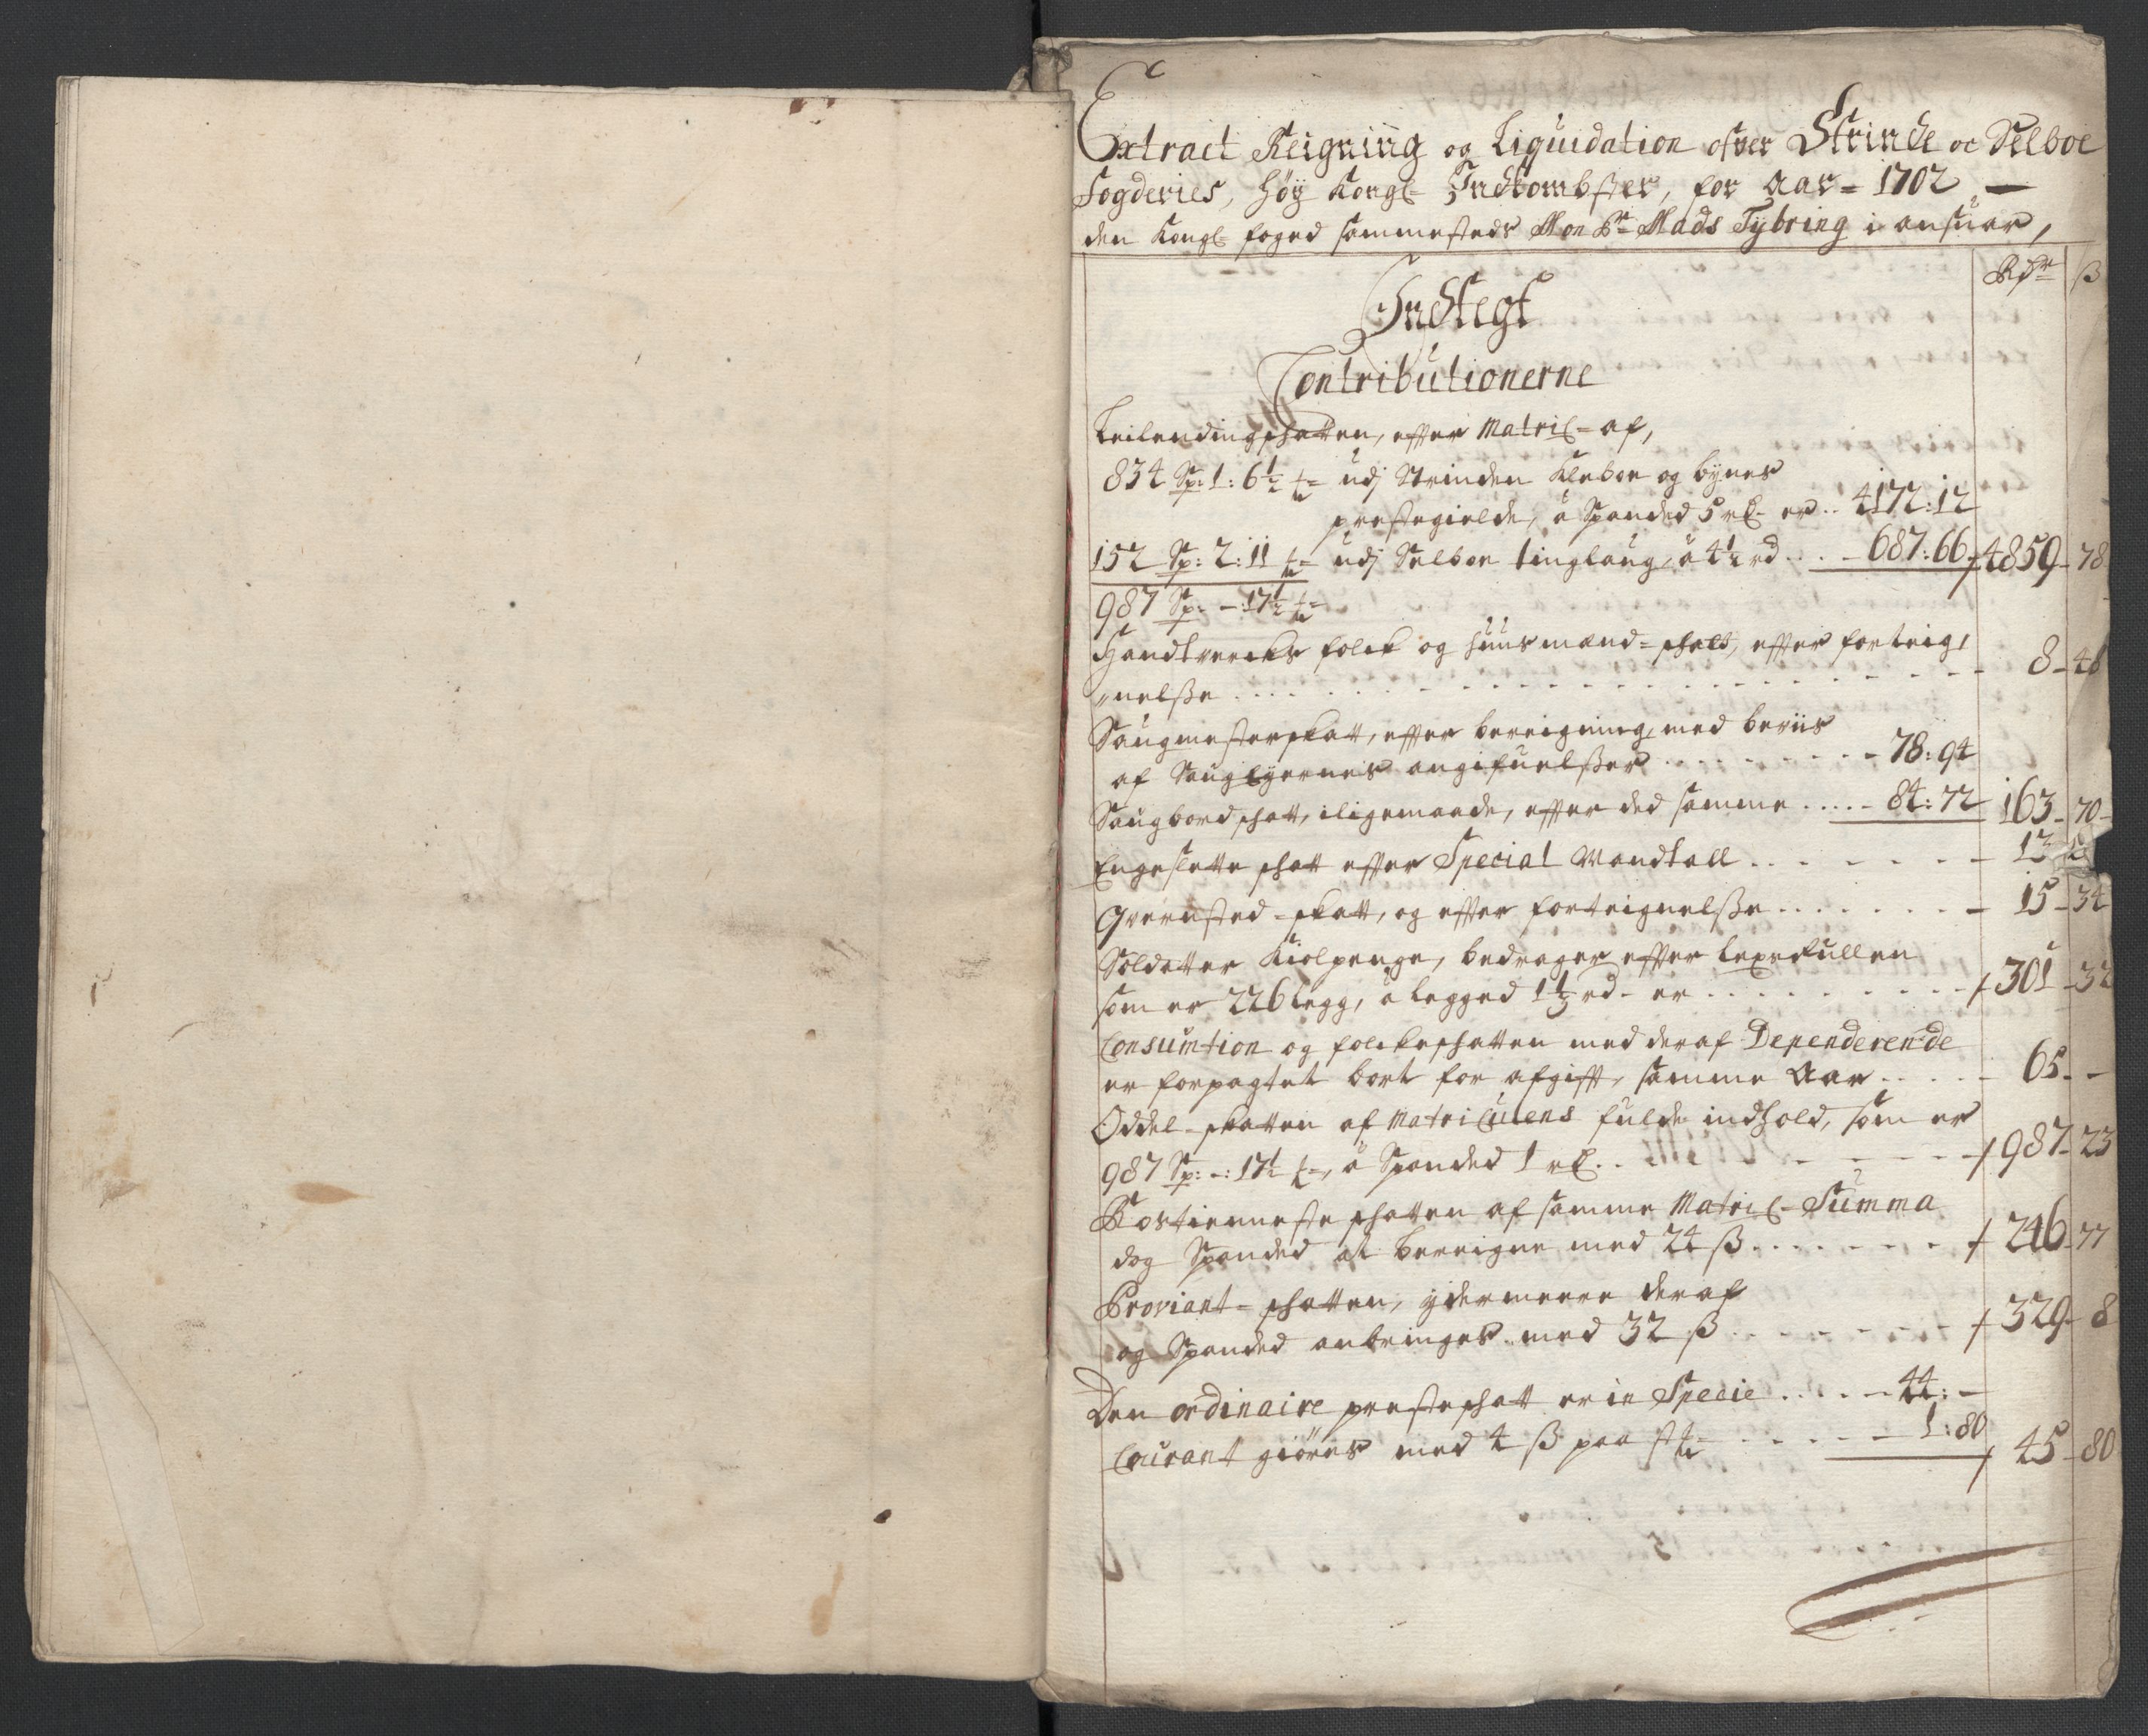 Extract Reigning og Liquidation ofver Strinde oc Selboe
fogderies, høÿ Kongl- Indkombster, for Aar = 1702 —
den Kongl- foged sammesteds Mon Sr Mads Tÿbring i ansuar,
Rdr ß
Indtegt
Contributionerne
Leilendingschatten, effter Matricl- af,
834 Sp: 1: 6½ udj Strinden Klæboe og bÿnes
prestegielde, â Spanded 5 rd- er .. 4172:12
152 Sp: 2: 11 udj Selboe tinglaug, â 4½ rd ... - 687:66 4859 - 78
987 Sp: - : 17½
Handtvercks folck og huusmænd = schatt, effter forteig,
nelsße .... 8 - 48
Saugmesterskatt, effter bereigning, med beviis
af Saug Eÿernes angifuelsßer .... 78:94
Saugbord schatt, iligemaade, effter ded samme ..... 84:72 163 - 70
Engeslette schatt effter Special Mandtall .... 13
Qvernsted - skatt, og effter forteignelsße .... 15 - 34
Soldatter Kiolpenge, bedrager effter legxrullen
som er 226 legg, â legged 1⅓ rd- er .... 301 - 32
Consumtion og folckeschatten med deraf Dependerende
er forpagtet bort for afgifft, samme Aar .... 65 - -
Oddel - skatten af Matriculens fulde indhold, som er
987 Sp: -: 17½, â Spanded 1 rd .. 987 - 23
Rostienneste schatten af samme Matricl- Summa
dog Spanded at bereigne med 24 ß .... 246 - 77
Proviant - schatten, ÿdermeere deraf
og Spanded anbringes med 32 ß .... 329 - 8
Den ordinaire presteschatt er in Specie .... 44: -
Courant giøres med 4 ß paa .... 1:80 45 - 80